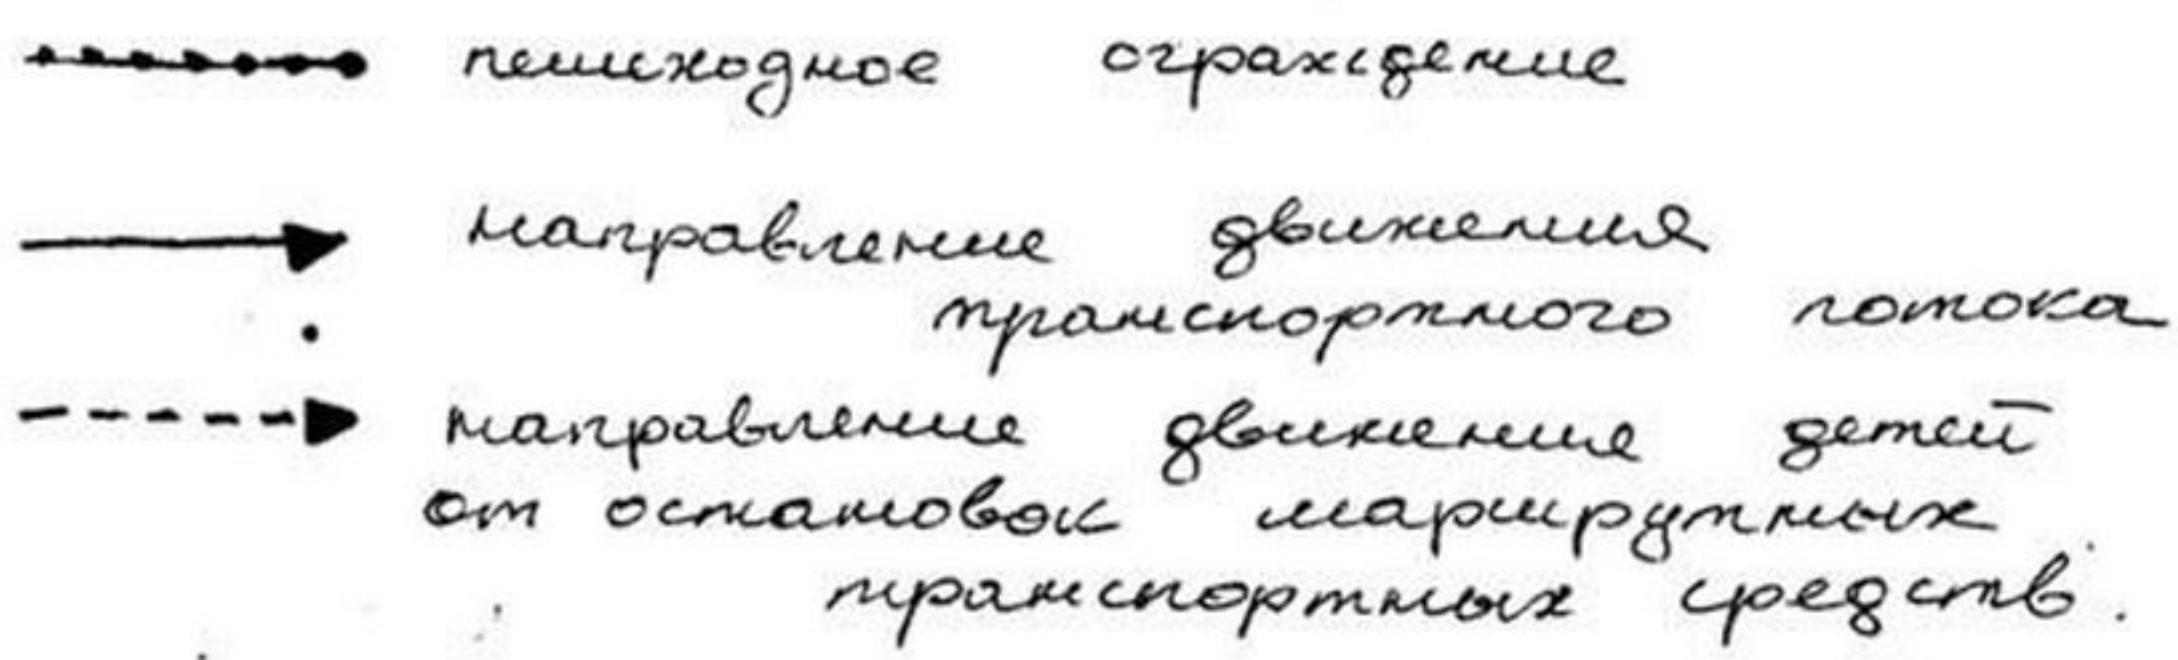 пешеходное ограждение
направление движения
транспортного потока
направление движение детей
от остановок маршрутных
транспортных средств.